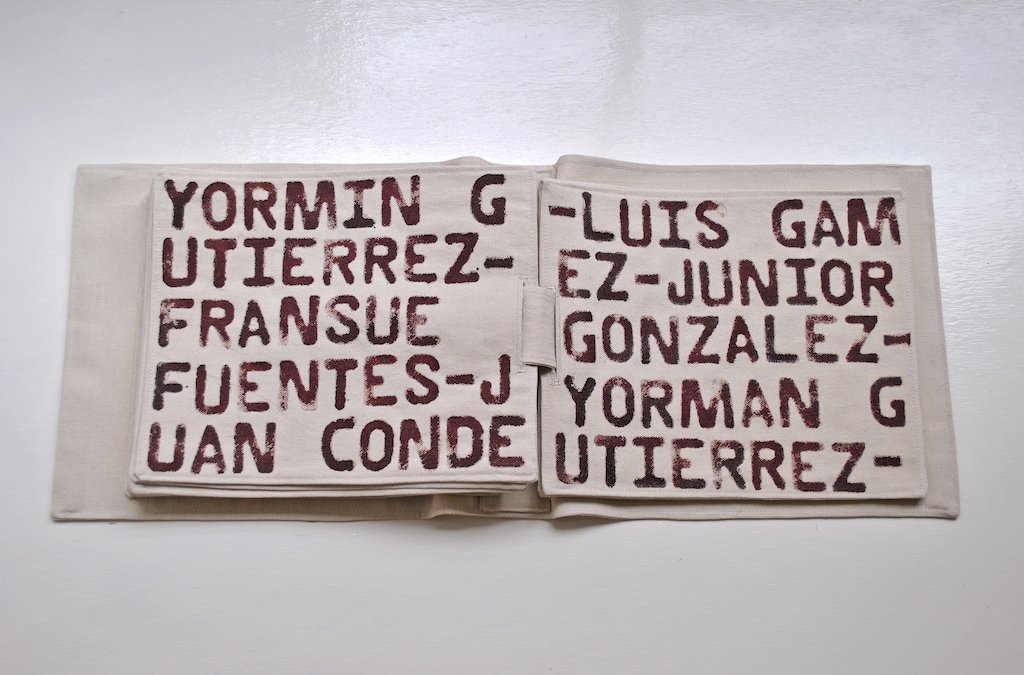 YORMIN G
UTIERREZ-
FRANSUE
FUENTES-J
UAN CONDE
-LUIS GAM
EZ-JUNIOR
GONZALEZ-
YORMAN G
UTIERREZ-